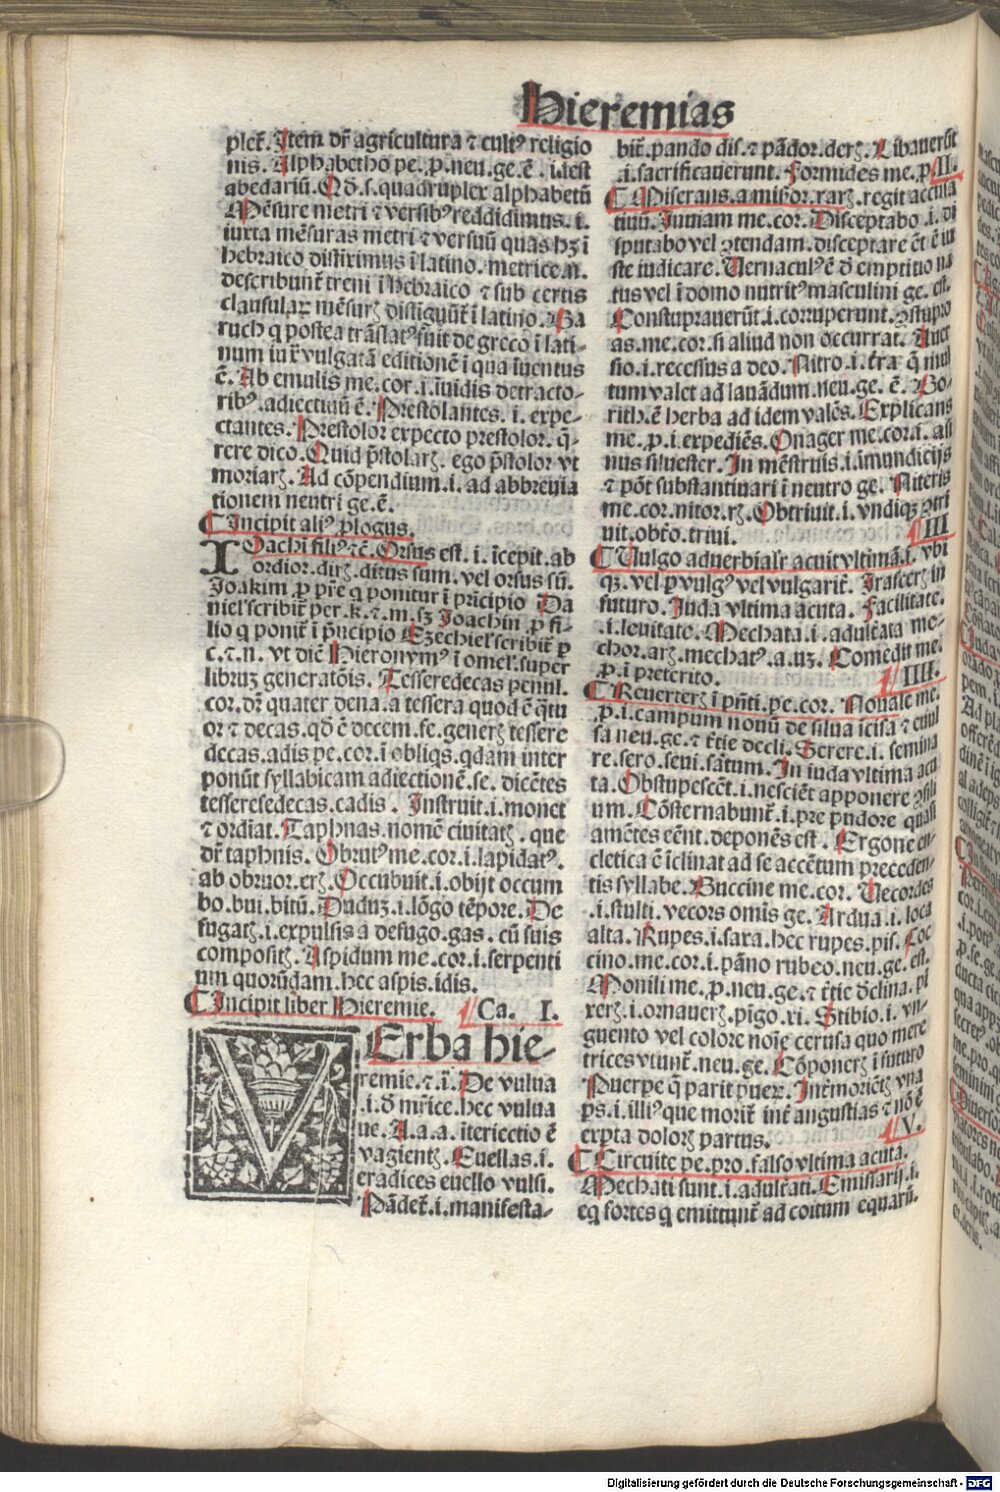 Hieremias
plet̃. Item dr̃ agricultura ⁊ cultꝰ religio
nis. Alphabetho pe. p. neu. ge. ē. i. ıest
abedariū. Qd̄. s. quadruplex alphabetū
Mēsure metri ⁊ versibꝰ reddidimus. i.
iuxta mēsuras metri ⁊ versuū quas hꝫ ī
hebraico distinximus ī latino. metrice. n.
describunt̃ treni ī hebraico ⁊ sub certis
clausulaꝝ mēsurꝭ distiguūt̃ ī latino. Ba
ruch q postea trāslatꝰ fuit de greco ī lati-
num iux̃ vulgatā editionē ī qua īuentus
ē. Ab emulis me. cor. i. īuidis detracto-
ribꝰ. adiectiuū ē. Prestolantes. i. expe-
ctantes. Prestolor expecto prestolor. q̄-
rere dico. Quid p̄stolarꝭ. ego p̄stolor vt
moriarꝭ. Ad cōpendium. i. ad abbreuia
tionem neutri ge. ē.
¶ Incipit aliꝰ ꝓlogus.
IOachi filiꝰ ⁊c̄. Orsus est. i. īcepit. ab
ordior. dirꝭ. ditus sum. vel orsus sū.
Joakim ꝓ pr̄e q ponitur ī prīcipio Da
niel scribit̃ per. k. ⁊. m. sꝫ Joachin ꝓ fi-
lio q ponit̃ ī pⁿcipio Ezechiel scribit̃ ꝑ
c. ⁊. n. vt dic̄ Hieronymꝰ ī omel. super
libruꝫ generatōis. Tesseredecas penul.
cor. dr̄ quater dena. a tessera quod ē qͣtu
or ⁊ decas. qd̄ ē decem. se. generꝭ tessere
decas. adis pe. cor. ī obliqs. qdam inter
ponūt syllabicam adiectionē. se. dicētes
tesseresedecas. cadis. Instruit. i. monet
⁊ ordiat. Taphnas. nomē ciuitatꝭ. que
dr̄ taphnis. Obrutꝰ me. cor. i. lapidatꝰ.
ab obruor. erꝭ. Occubuit. i. obijt occum
bo. bui. bitū. Duduꝫ. i. lōgo tēpore. De
fugatꝭ. i. expulsis a defugo. gas. cū suis
compositꝭ. Aspidum me. cor. i. serpenti
um quorūdam. hec aspis. idis.
¶ Incipit liber Hieremie. ¶ Ca. I.
VErba hie-
remie. ⁊. ī. De vulua
.i. d̄ mr̄ice. hec vulua
ue. A. a. a. īteriectio ē
vagientꝭ. Euellas. i.
eradices euello vulsi.
Pādet̃. i. manifesta-
bit̃. pando dis. ⁊ pādor. derꝭ. Libauerūt
.i. sacrificauerunt. Formides me. ꝓ ¶ II.
¶ Miserans. a misēor. rarꝭ. regit accusa
tiuū. Inuiam me. cor. Disceptabo. i. di
sputabo vel ꝯtendam. disceptare ēt ē iu
ste iudicare. Uernaculꝰ ē d̄ emptitio na
tus vel ī domo nutritꝰ masculini ge. est.
Constuprauerūt. i. corruperunt. ꝯstupro
as. me. cor. si aliud non occurrat. Auer
sio. i. recessus a deo. Nitro. i. t̃ra q̄ mul
tum valet ad lauādum. neu. ge. ē. Bo-
rith. ē herba ad idem valēs. Explicans
me. ꝓ. i. expediēs. Onager me. corā. asi
nus siluester. In mēstruis. i. īmundicijs
⁊ pōt substantiuari ī neutro ge. Niteris
me. cor. nitor. rꝭ. Obtriuit. i. vndiqꝫ ꝯtri
uit. obt̃o. triui. ¶ III
¶ Vulgo aduerbialr̄ acuit vltimā. i. vbi
qꝫ. vel ꝑ vulgꝰ vel vulgarit̃. Irascerꝭ in
futuro. Iuda vltima acuta. Facilitate.
.i. leuitate. Mechata. i. adult̃ata me-
chor. arꝭ. mechatꝰ. a. uꝫ. Comedit me.
ꝓ. i preterito. ¶ IIII.
¶ Reuerterꝭ ī pn̄ti. pe. cor. Nouale me.
ꝓ. i. campum nouū de silua icisa ⁊ euul
sa neu. ge. ⁊ t̃tie decli. Serere. i. semina
re. sero. seui. satum. In iuda vltima acu
ta. Obstupescēt. i. nesciēt apponere ꝯsili
um. Cōsternabunt̃. i. pre pudore quasi
amētes eēnt. deponēs est. Ergone en-
cletica ē īclinat ad se accētum preceden-
tis syllabe. Buccine me. cor. Uecordes
.i. stulti. vecors omīs ge. Ardua. i. loca
alta. Rupes. i. saxa. hec rupes. pis. Coc
cino. me. cor. i. pāno rubeo. neu. ge. est.
Monili me. ꝓ. neu. ge. ⁊ t̃tie d̄clina. pī
xerꝭ. i. ornauerꝭ. pīgo. xi. Stibio. i. vn-
guento vel colore noīe cerusa quo mere
trices vtunt̃. neu. ge. Cōponerꝭ ī futuro
Puerpe q̄ parit pueꝝ. Int̃moriētꝭ vna
ps. i. illiꝰ que morit̃ int̃ angustias ⁊ nō ē
experta dolorꝭ partus. ¶ V.
¶ Circuite pe. pro. falso vltima acuta.
Mechati sunt. i. adult̃ati. Emissarij. i.
eq̄ fortes q̄ emittunt̃ ad coitum equarū.
Digitalisierung gefördert durch die Deutsche Forschungsgemeinschaft - DFG